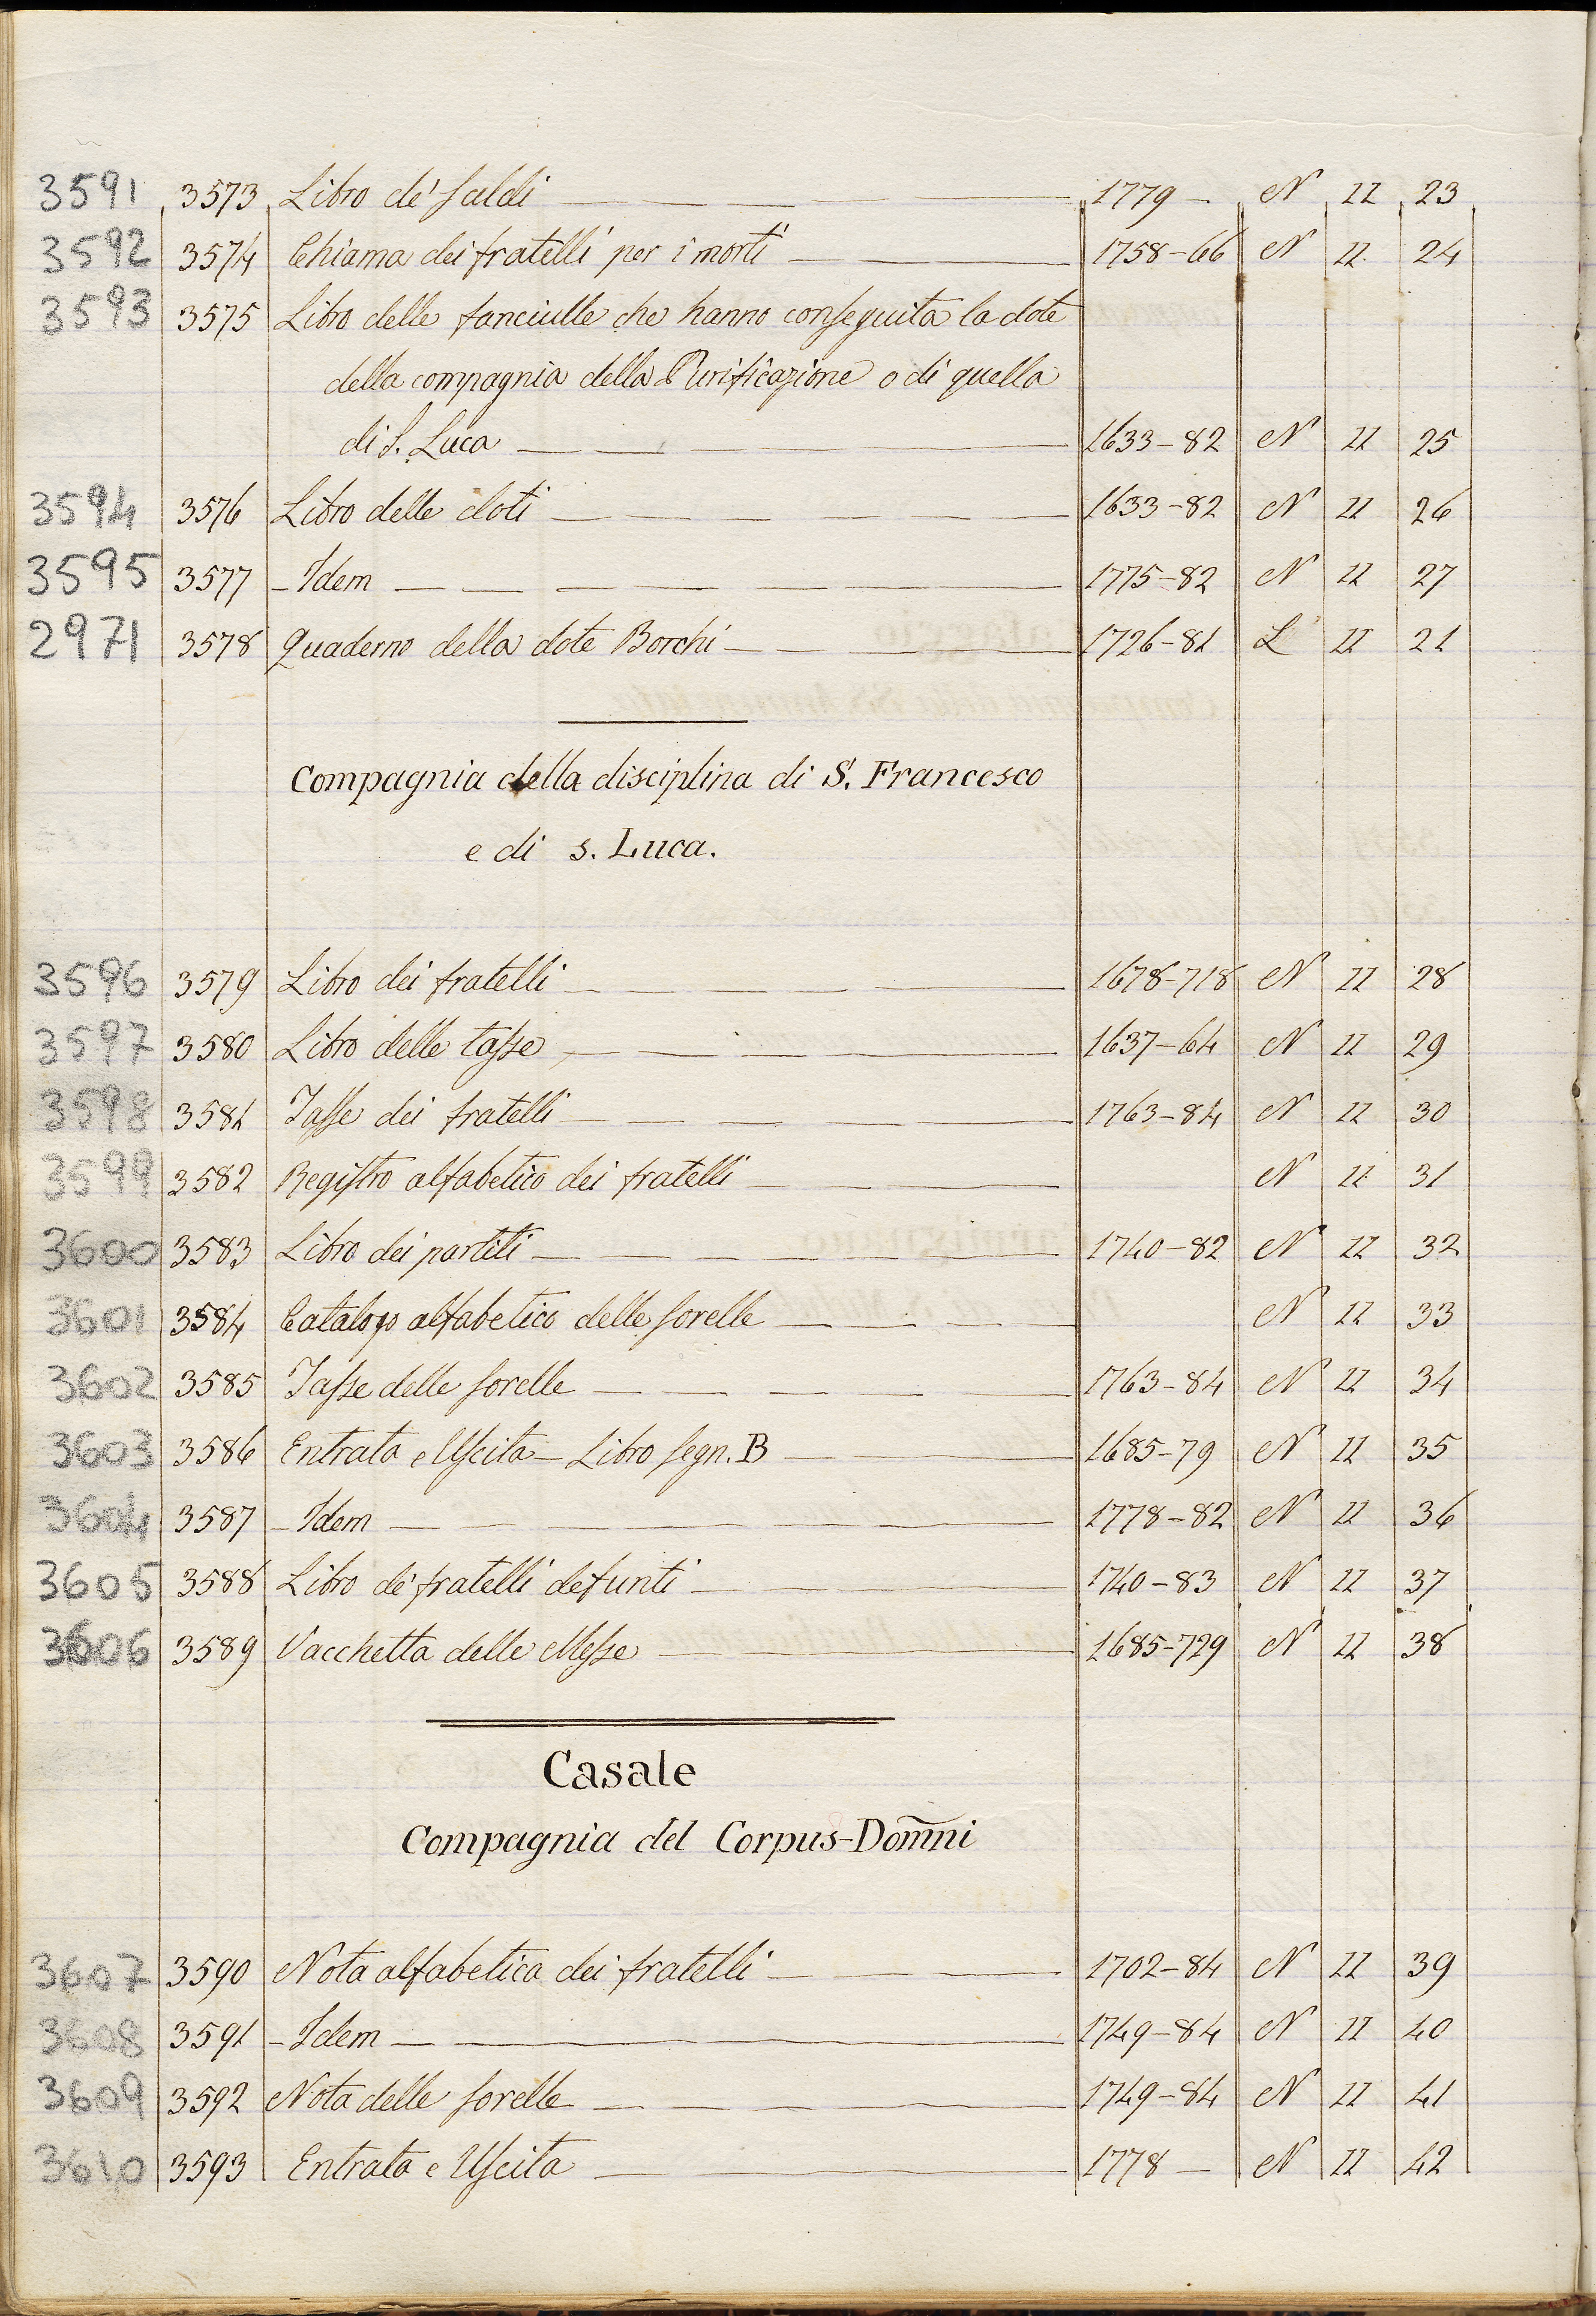 3591 3573 Libro de' saldi 1779 - N II 23
3592 3574 Chiama dei fratelli per i morti 1758-66 N II 24
3593 3575 Libro delle fanciulle che hanno conseguita la dote
della compagnia della Purificazione o di quella
di S. Luca 1633-82 N II 25
3594 3576 Libro delle doti 1633-82 N II 26
3595 3577 - Idem 1775-82 N II 27
2971 3578 Quaderno della dote Borchi 1726-81 L II 21
Compagnia della disciplina di S. Francesco
e di s. Luca.
3596 3579 Libro dei fratelli 1678-718 N II 28
3597 3580 Libro delle tasse 1637-64 N II 29
3598 3581 Tasse dei fratelli 1763-84 N II 30
3599 3582 Registro alfabetico dei fratelli N II 31
3600 3583 Libro dei partiti 1740-82 N II 32
3601 3584 Catalogo alfabetico delle sorelle N II 33
3602 3585 Tasse delle sorelle 1763-84 N II 34
3603 3586 Entrata e Uscita - Libro segn. B 1685-79 N II 35
3604 3587 - Idem 1778-82 N II 36
3605 3588 Libro de' fratelli defunti 1740-83 N II 37
3606 3589 Vacchetta delle Messe 1685-729 N II 38
Casale
Compagnia del Corpus-Dom̅ni
3607 3590 Nota alfabetica dei fratelli 1702-84 N II 39
3608 3591 - Idem 1749-84 N II 40
3609 3592 Nota delle sorelle 1749-84 N II 41
3610 3593 Entrata e Uscita 1778 - N II 42